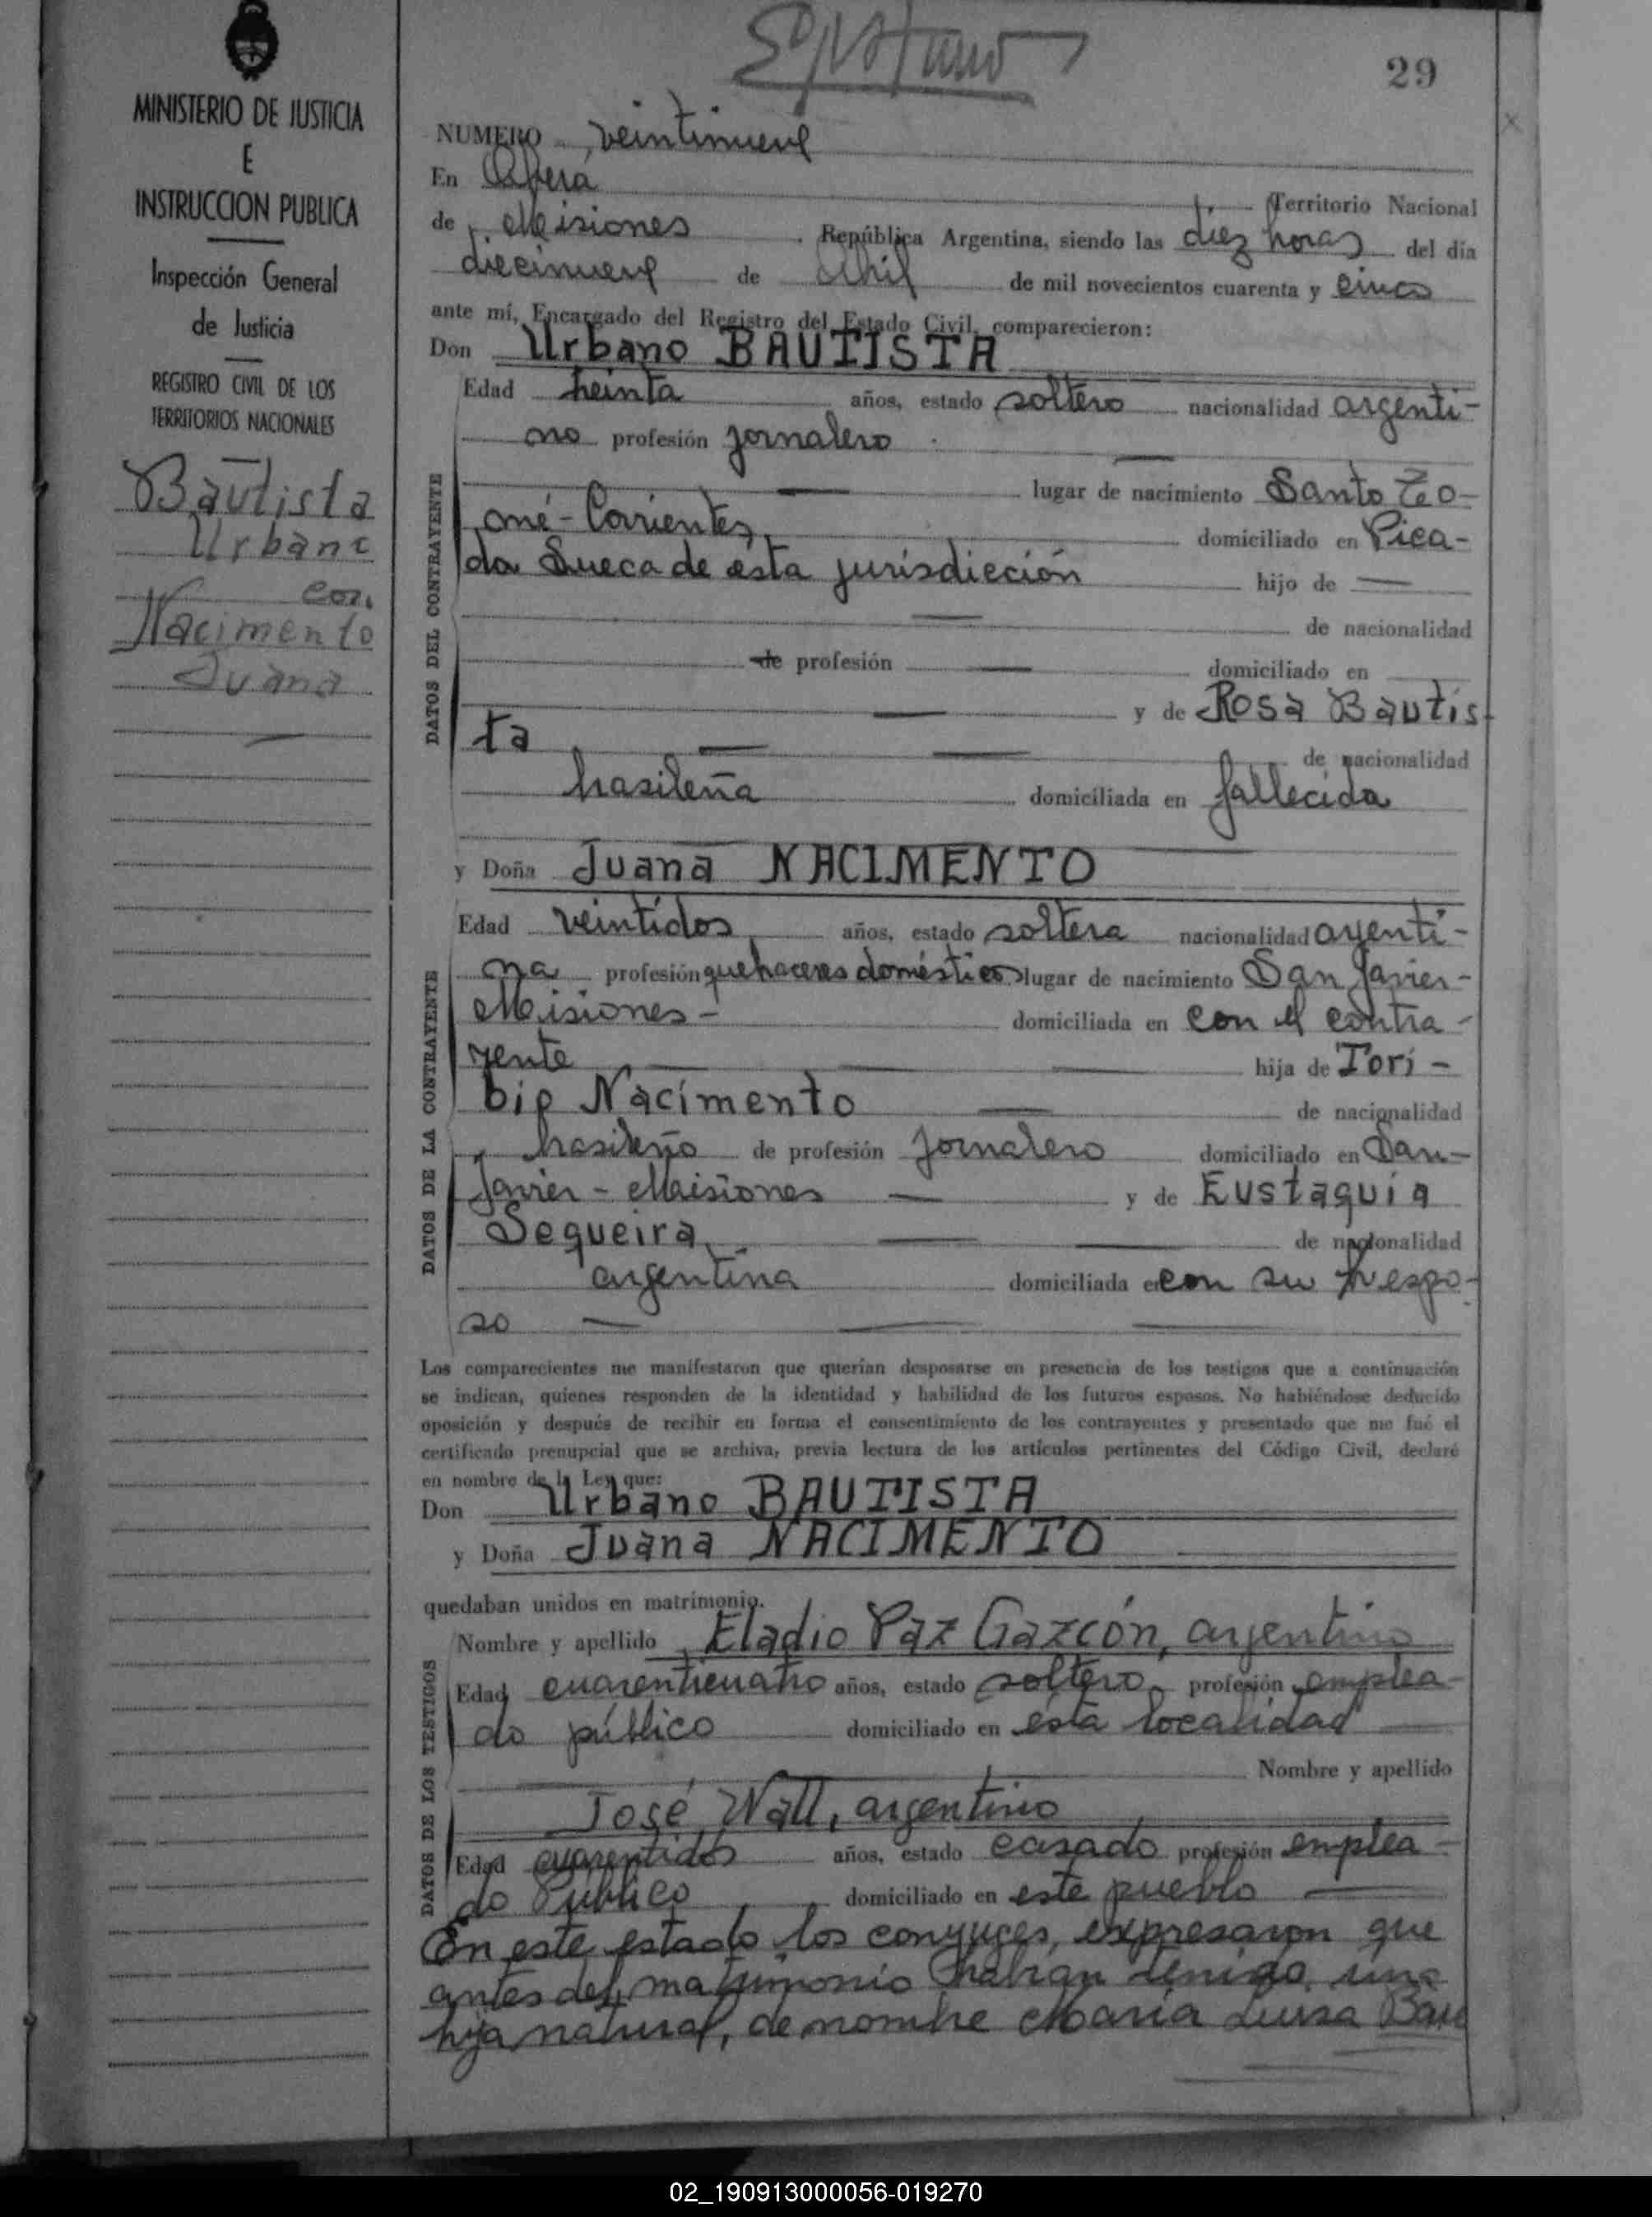 29
MINISTERIO DE JUSTICIA
E
INSTRUCCION PUBLICA
Inspección General
de Justicia
REGISTRO CIVIL DE LOS
TERRITORIOS NACIONALES
Bautista
Urbano
con
Nacimento
Juana
NUMERO veintinueve
En Oberá Territorio Nacional
de Misiones República Argentina, siendo las diez horas del día
diecinueve de Abril de mil novecientos cuarenta y cinco
ante mí, Encargado del Registro del Estado Civil, comparecieron:
Don Urbano BAUTISTA
DATOS DEL CONTRAYENTE
Edad treinta años, estado soltero nacionalidad argenti-
no profesión jornalero
lugar de nacimiento Santo To-
mé - Corrientes domiciliado en Pica-
da Sueca de ésta jurisdicción hijo de
de nacionalidad
de profesión domiciliado en
y de Rosa Bautis-
ta de nacionalidad
brasileña domiciliada en fallecida
y Doña Juana NACIMENTO
DATOS DE LA CONTRAYENTE
Edad veintidos años, estado soltera nacionalidad argenti-
na profesión quehaceres domésticos lugar de nacimiento San Javier-
Misiones - domiciliada en con el contra-
yente hija de Tori-
bio Nacimento de nacionalidad
brasileño de profesión jornalero domiciliado en San-
Javier - Misiones y de Eustaquia
Sequeira de nacionalidad
argentina domiciliada en con su espo-
so
Los comparecientes me manifestaron que querían desposarse en presencia de los testigos que a continuación
se indican, quienes responden de la identidad y habilidad de los futuros esposos. No habiéndose deducido
oposición y después de recibir en forma el consentimiento de los contrayentes y presentado que me fué el
certificado prenupcial que se archiva, previa lectura de los artículos pertinentes del Código Civil, declaré
en nombre de la Ley que:
Don Urbano BAUTISTA
y Doña Juana NACIMENTO
quedaban unidos en matrimonio.
DATOS DE LOS TESTIGOS
Nombre y apellido Eladio Paz Gazcón, argentino
Edad cuarenticuatro años, estado soltero profesión emplea-
do público domiciliado en ésta localidad
Nombre y apellido
José Wall, argentino
Edad cuarentidós años, estado casado profesión emplea-
do Público domiciliado en este pueblo
En este estado los conyuges, expresaron que
antes del matrimonio habian tenido una
hija natural, de nombre Maria Luisa Bau
02_190913000056-019270